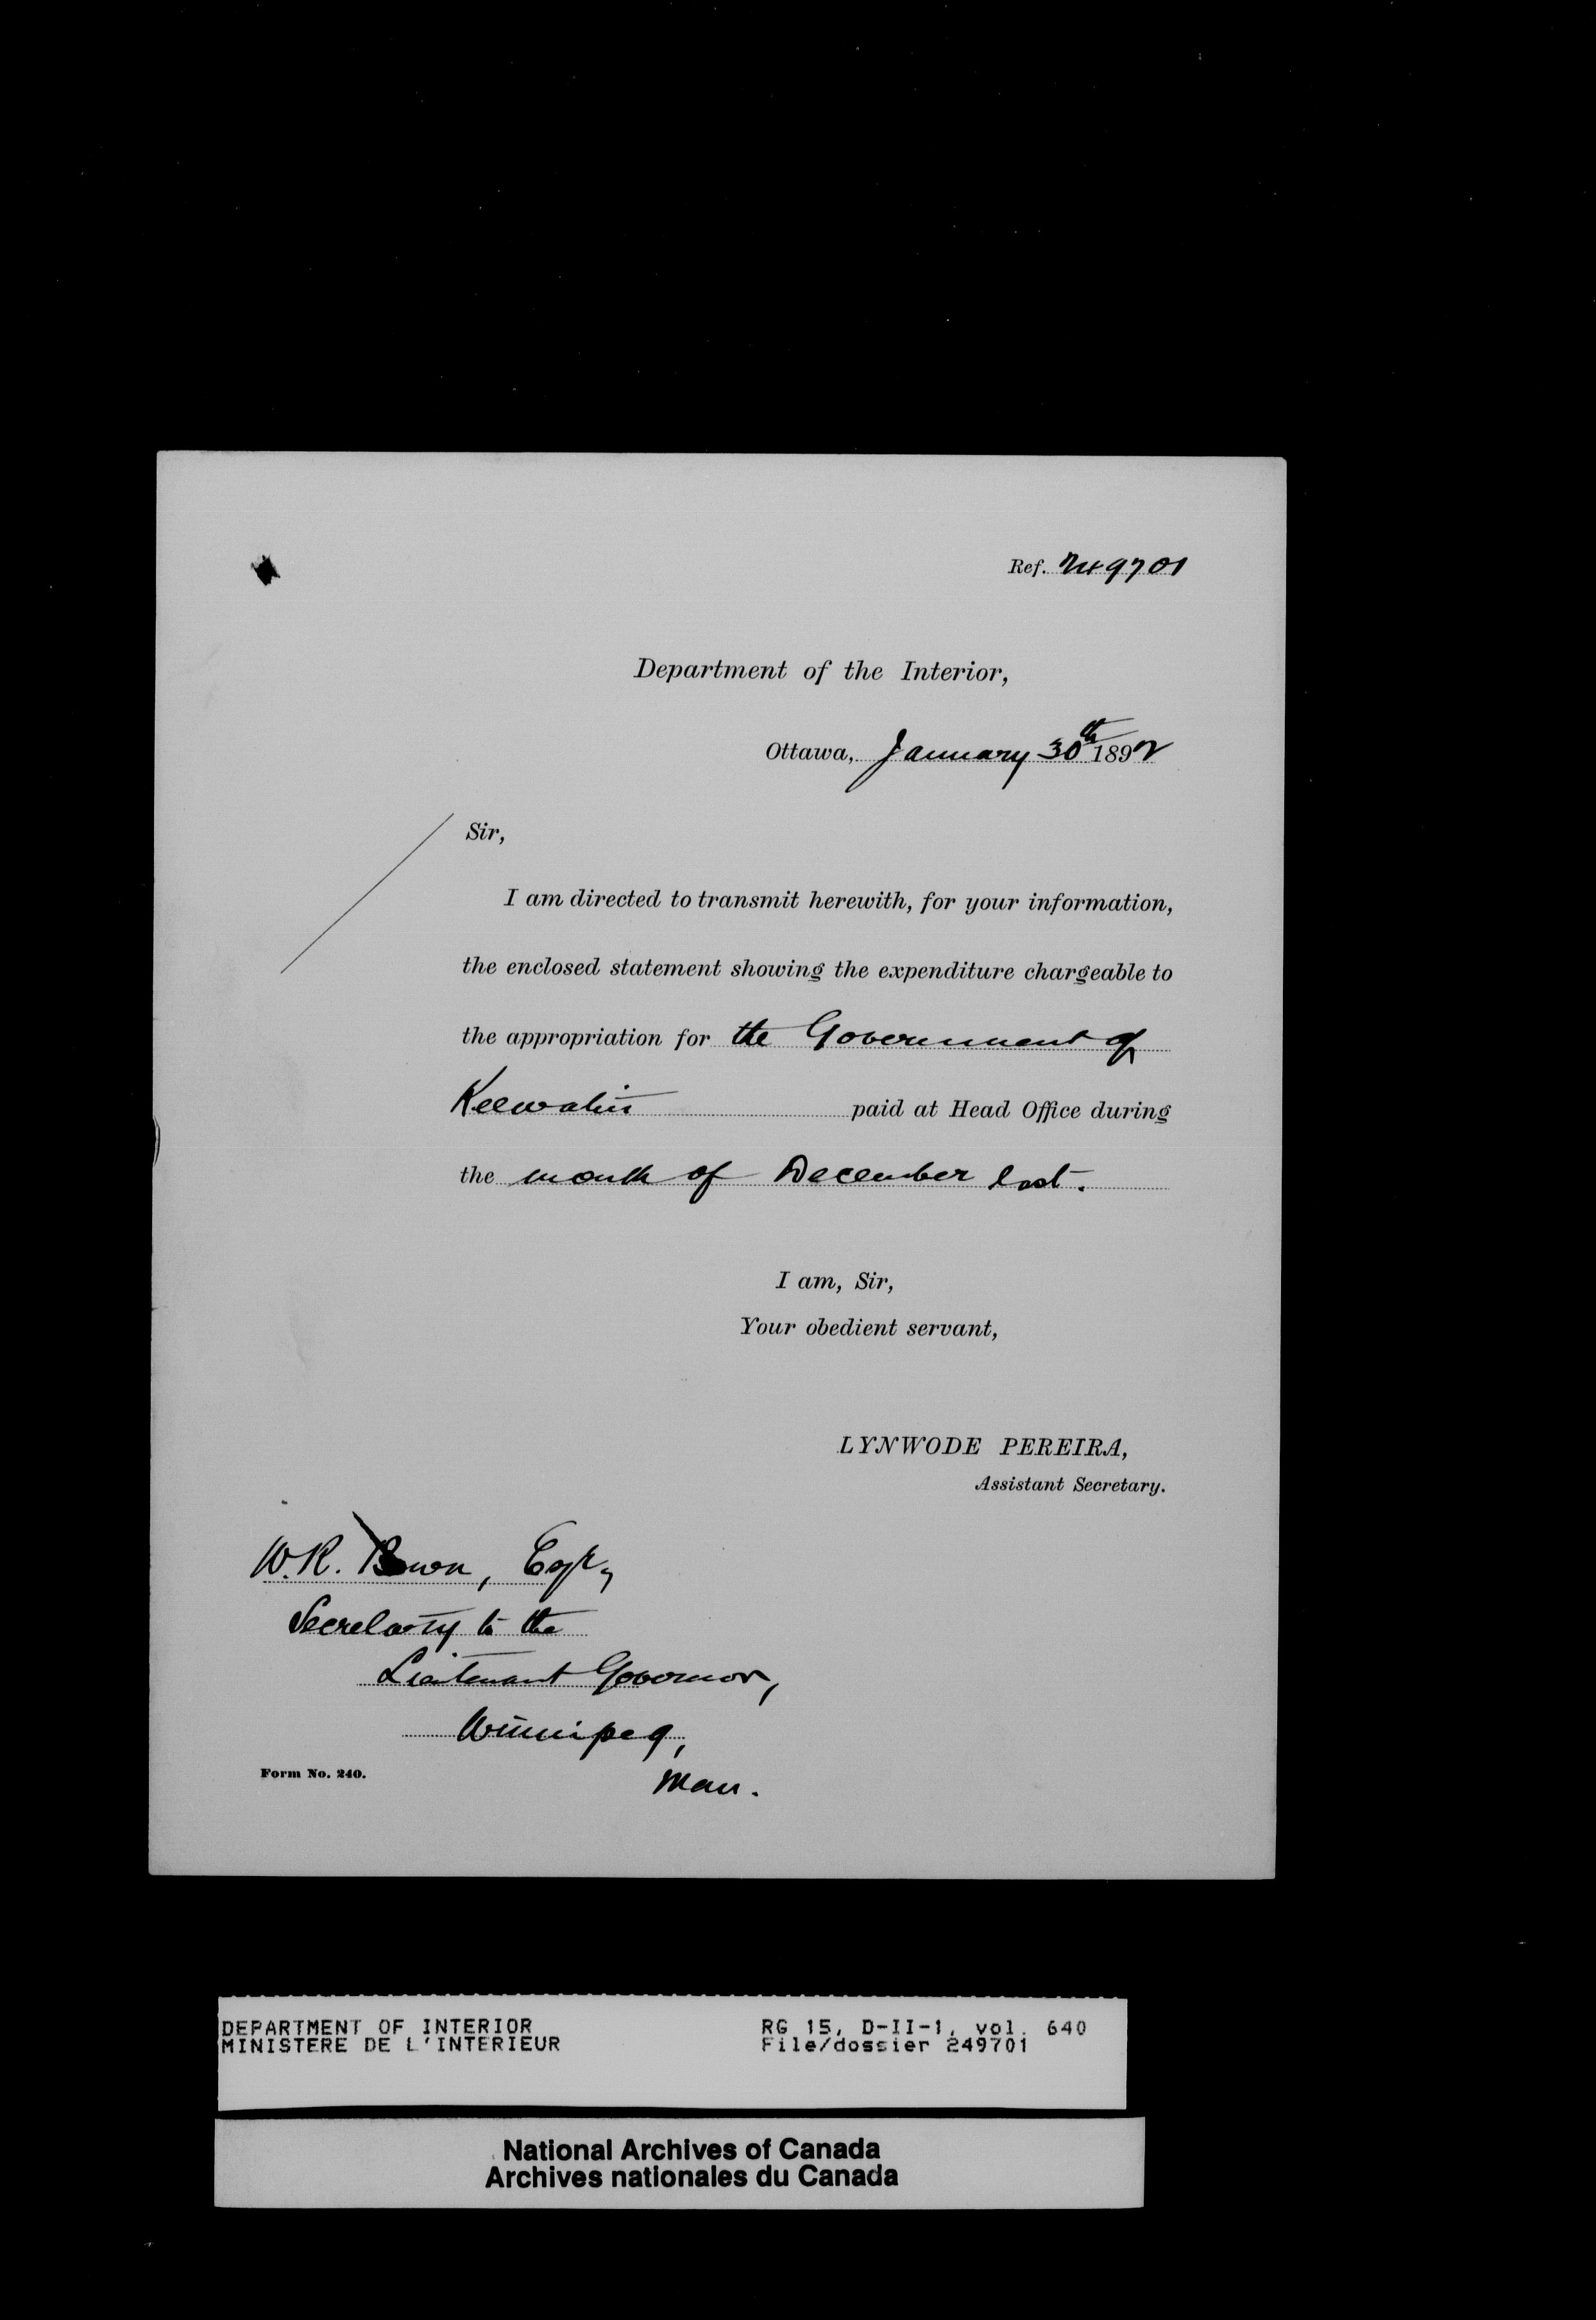 Ref. 249701
Department of the Interior,
Ottawa, January 30th 1892
Sir,
I am directed to transmit herewith, for your information,
the enclosed statement showing the expenditure chargeable to
the appropriation for the Government of
Keewatin paid at Head Office during
the month of December last.
I am, Sir,
Your obedient servant,
LYNWODE PEREIRA,
Assistant Secretary.
W.R. Bown, Esqr,
Secretary to the
Lieutenant Governor,
Winnipeg,
Man.
Form No. 240.
DEPARTMENT OF INTERIOR RG 15, D-II-1, vol. 640
MINISTERE DE L'INTERIEUR File/dossier 249701
National Archives of Canada
Archives nationales du Canada